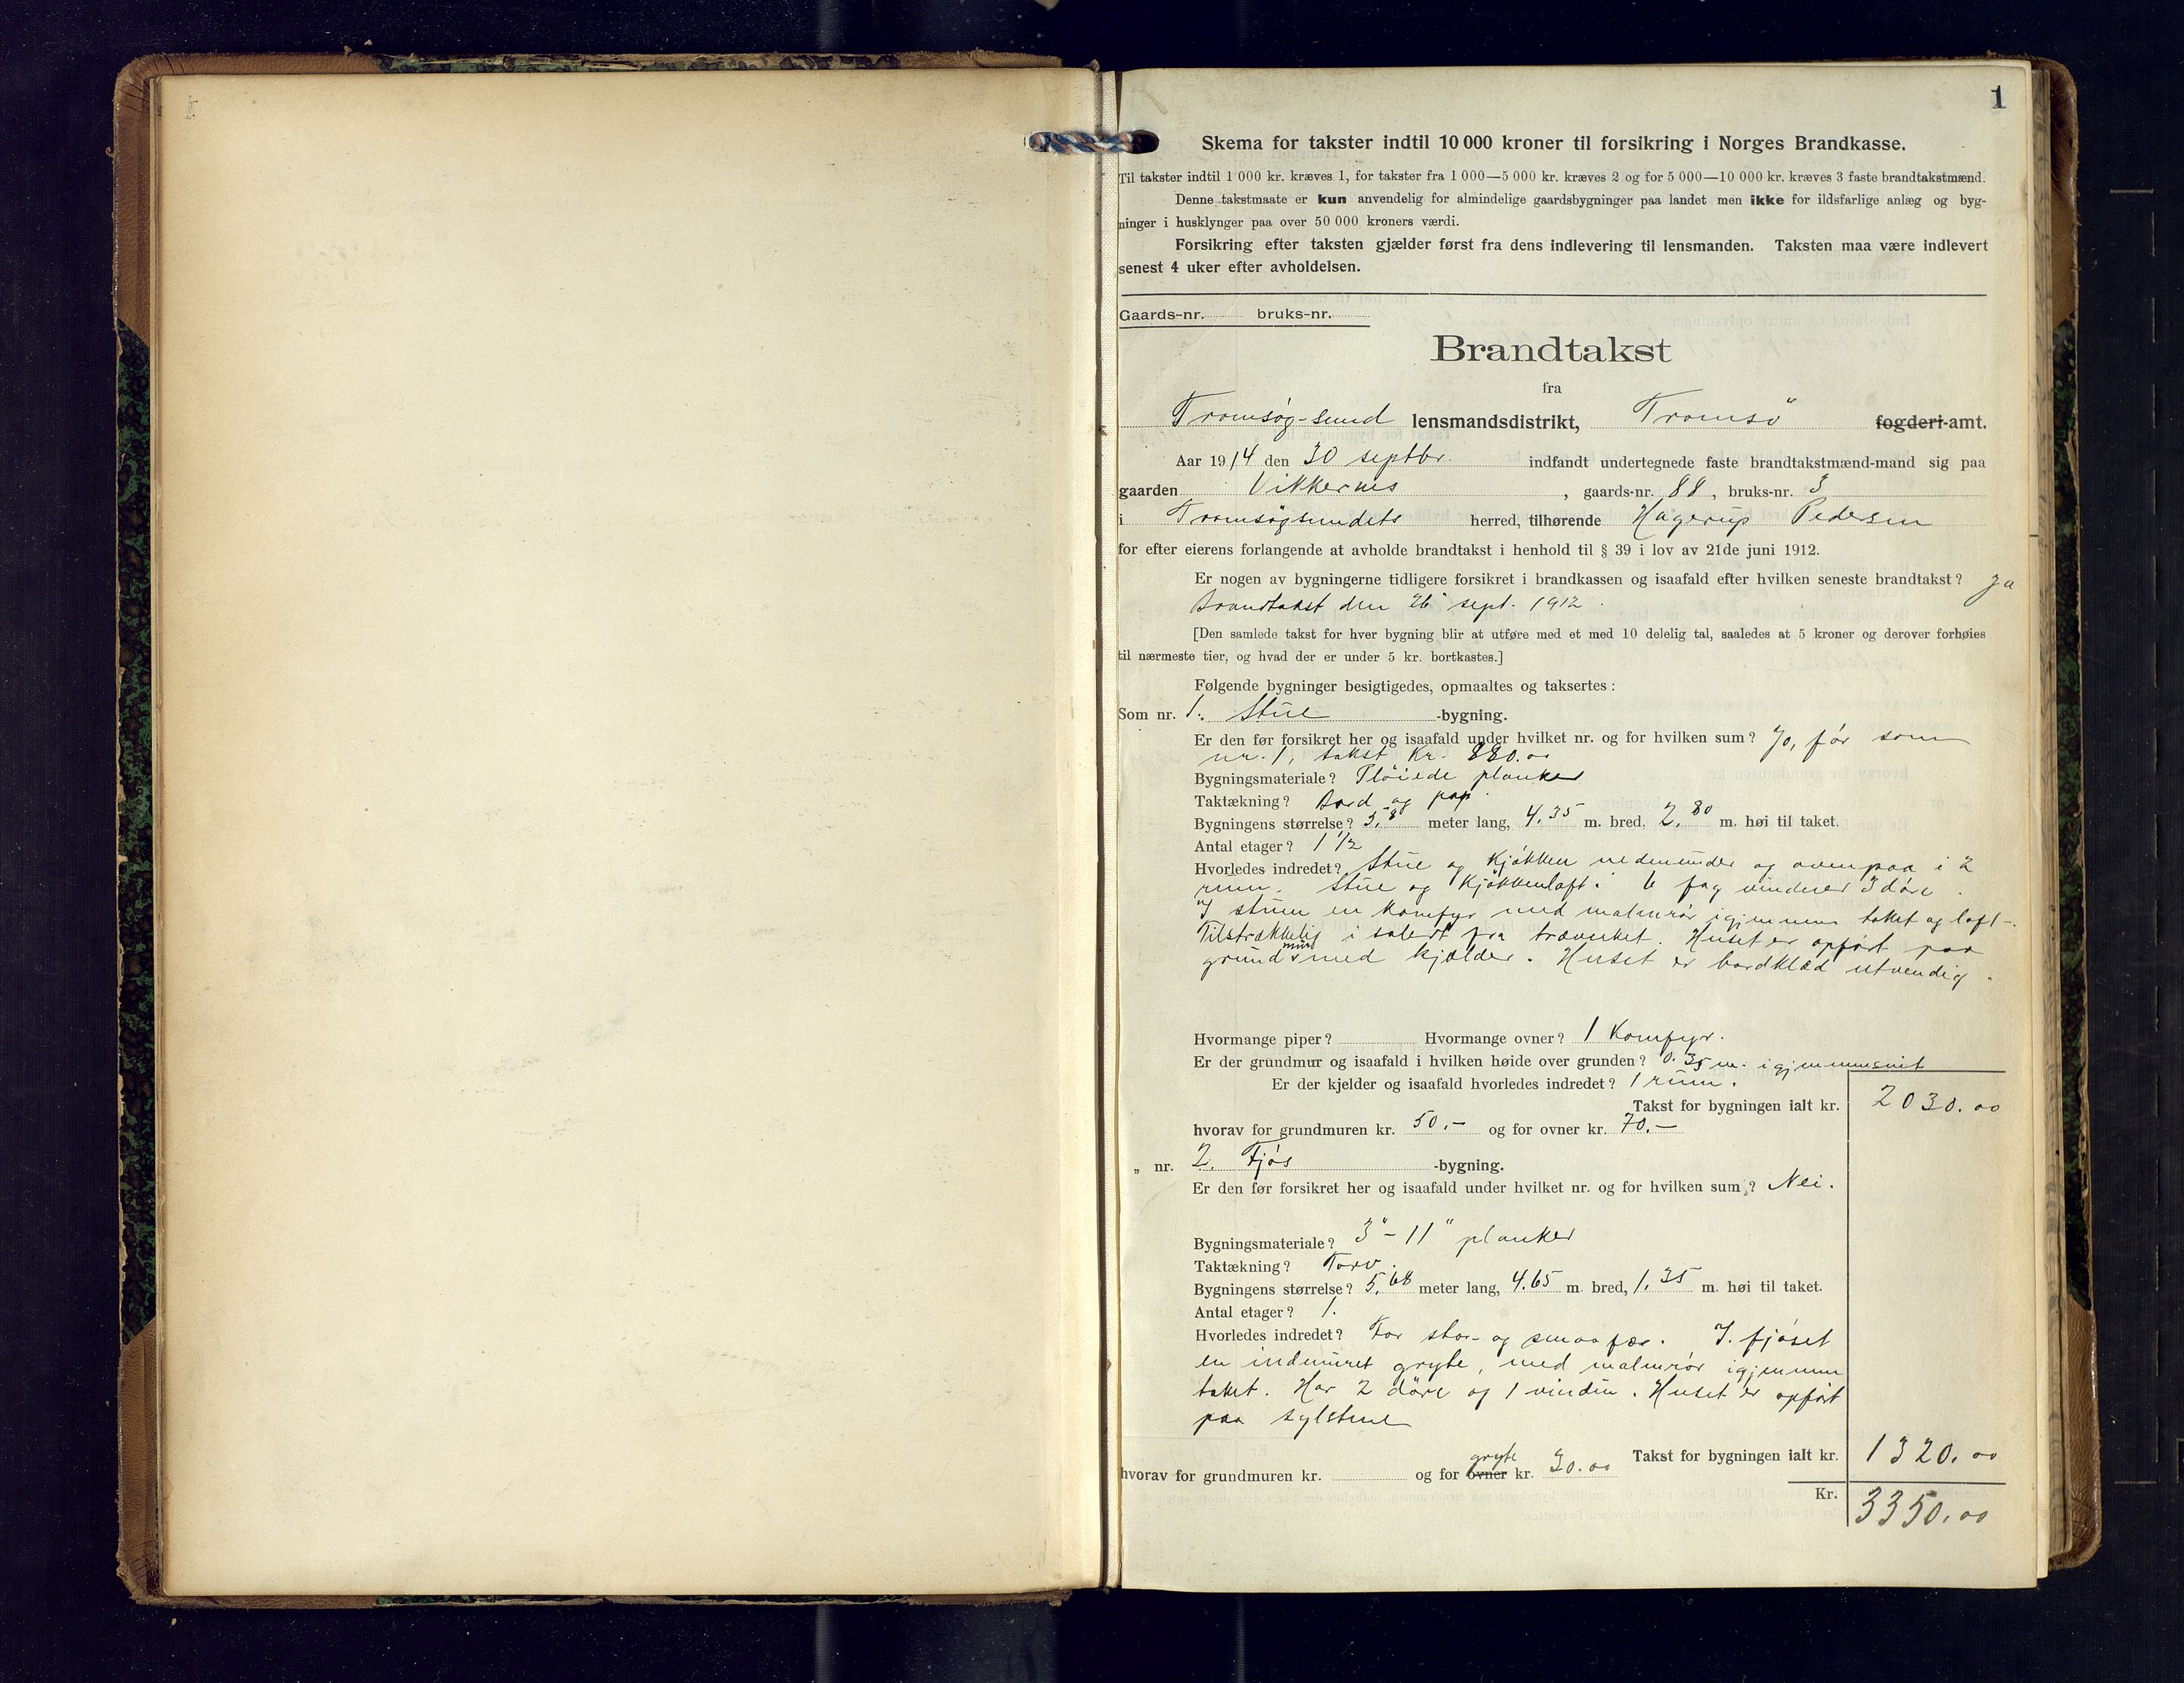 1
Skema for takster indtil 10 000 kroner til forsikring i Norges Brandkasse.
Til takster indtil 1 000 kr. kræves 1, for takster fra 1 000—5 000 kr. kræves 2 og for 5 000—10 000 kr. kræves 3 faste brandtakstmænd.
Denne takstmaate er kun anvendelig for almindelige gaardsbygninger paa landet men ikke for ildsfarlige anlæg og byg-
ninger i husklynger paa over 50 000 kroners værdi.
Forsikring efter taksten gjælder først fra dens indlevering til lensmanden. Taksten maa være indlevert
senest 4 uker efter avholdelsen.
Gaards-nr. bruks-nr.
Brandtakst
fra
Tromsøg-sund lensmandsdistrikt, Tromsö fogderi-amt.
Aar 1914 den 30 septbr. indfandt undertegnede faste brandtakstmænd-mand sig paa
gaarden Vikkernes, gaards-nr. 88, bruks-nr. 3
i Tromsøgsundets herred, tilhørende Hagerup Pedersen
for efter eierens forlangende at avholde brandtakst i henhold til § 39 i lov av 21de juni 1912.
Er nogen av bygningerne tidligere forsikret i brandkassen og isaafald efter hvilken seneste brandtakst? Ja
Brandtakst den 26 sept. 1912.
[Den samlede takst for hver bygning blir at utføre med et med 10 delelig tal, saaledes at 5 kroner og derover forhøies
til nærmeste tier, og hvad der er under 5 kr. bortkastes.]
Følgende bygninger besigtigedes, opmaaltes og taksertes :
Som nr. 1. Stue -bygning.
Er den før forsikret her og isaafald under hvilket nr. og for hvilken sum? Jo, før som
nr. 1, takst Kr. 880.00
Bygningsmateriale? Pløiede planker
Taktækning? Bord og pap.
Bygningens størrelse? 5,80 meter lang, 4.35 m. bred, 2,80 m. høi til taket.
Antal etager? 1 1/2
Hvorledes indredet? Stue og Kjøkken nedenunder og ovenpaa i 2
rum. Stue og Kjøkkenloft. 6 fag vinduer 3 døre.
I stuen en Komfyr med malmrør igjennem taket og loft-.
Tilstrækkelig isolert fra træverket. Huset er opført paa
grundmur med kjælder. Huset er bordklæd utvendig.
Hvormange piper? Hvormange ovner? 1 Komfyr.
Er der grundmur og isaafald i hvilken høide over grunden? 0.35 m. igjennemsnit
Er der kjelder og isaafald hvorledes indredet? 1 rum.
Takst for bygningen ialt kr. 2030.00
hvorav for grundmuren kr. 50.- og for ovner kr. 70.-
„ nr. 2. Fjøs -bygning.
Er den før forsikret her og isaafald under hvilket nr. og for hvilken sum? Nei.
Bygningsmateriale? 3" - 11" planker
Taktækning? Torv.
Bygningens størrelse? 5,68 meter lang, 4.65 m. bred, 1,35 m. høi til taket.
Antal etager? 1.
Hvorledes indredet? For stor- og smaa fær. I. fjøset
en indmuret gryte, med malmrør igjennem
taket. Har 2 døre og 1 vindu. Huset er opført
paa sylstene
Takst for bygningen ialt kr. 1320.00
hvorav for grundmuren kr. og for ovner gryte kr. 30.00
Kr. 3350.00